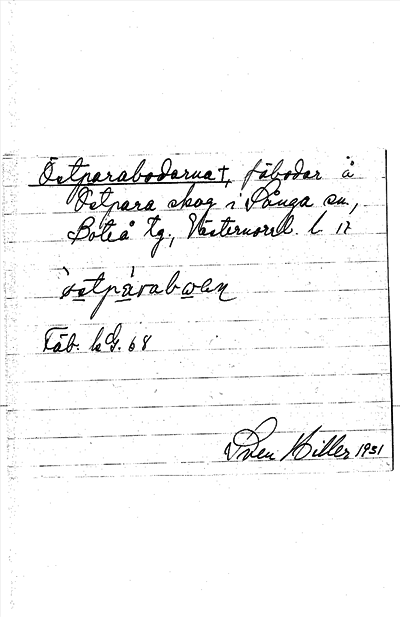 Östparabodarna †, fäbodar å
Östpara skog i Långa sn,
Boteå tg., Västernorrl. l. 17
Fäb. h G. 68
Sven Hiller 1931